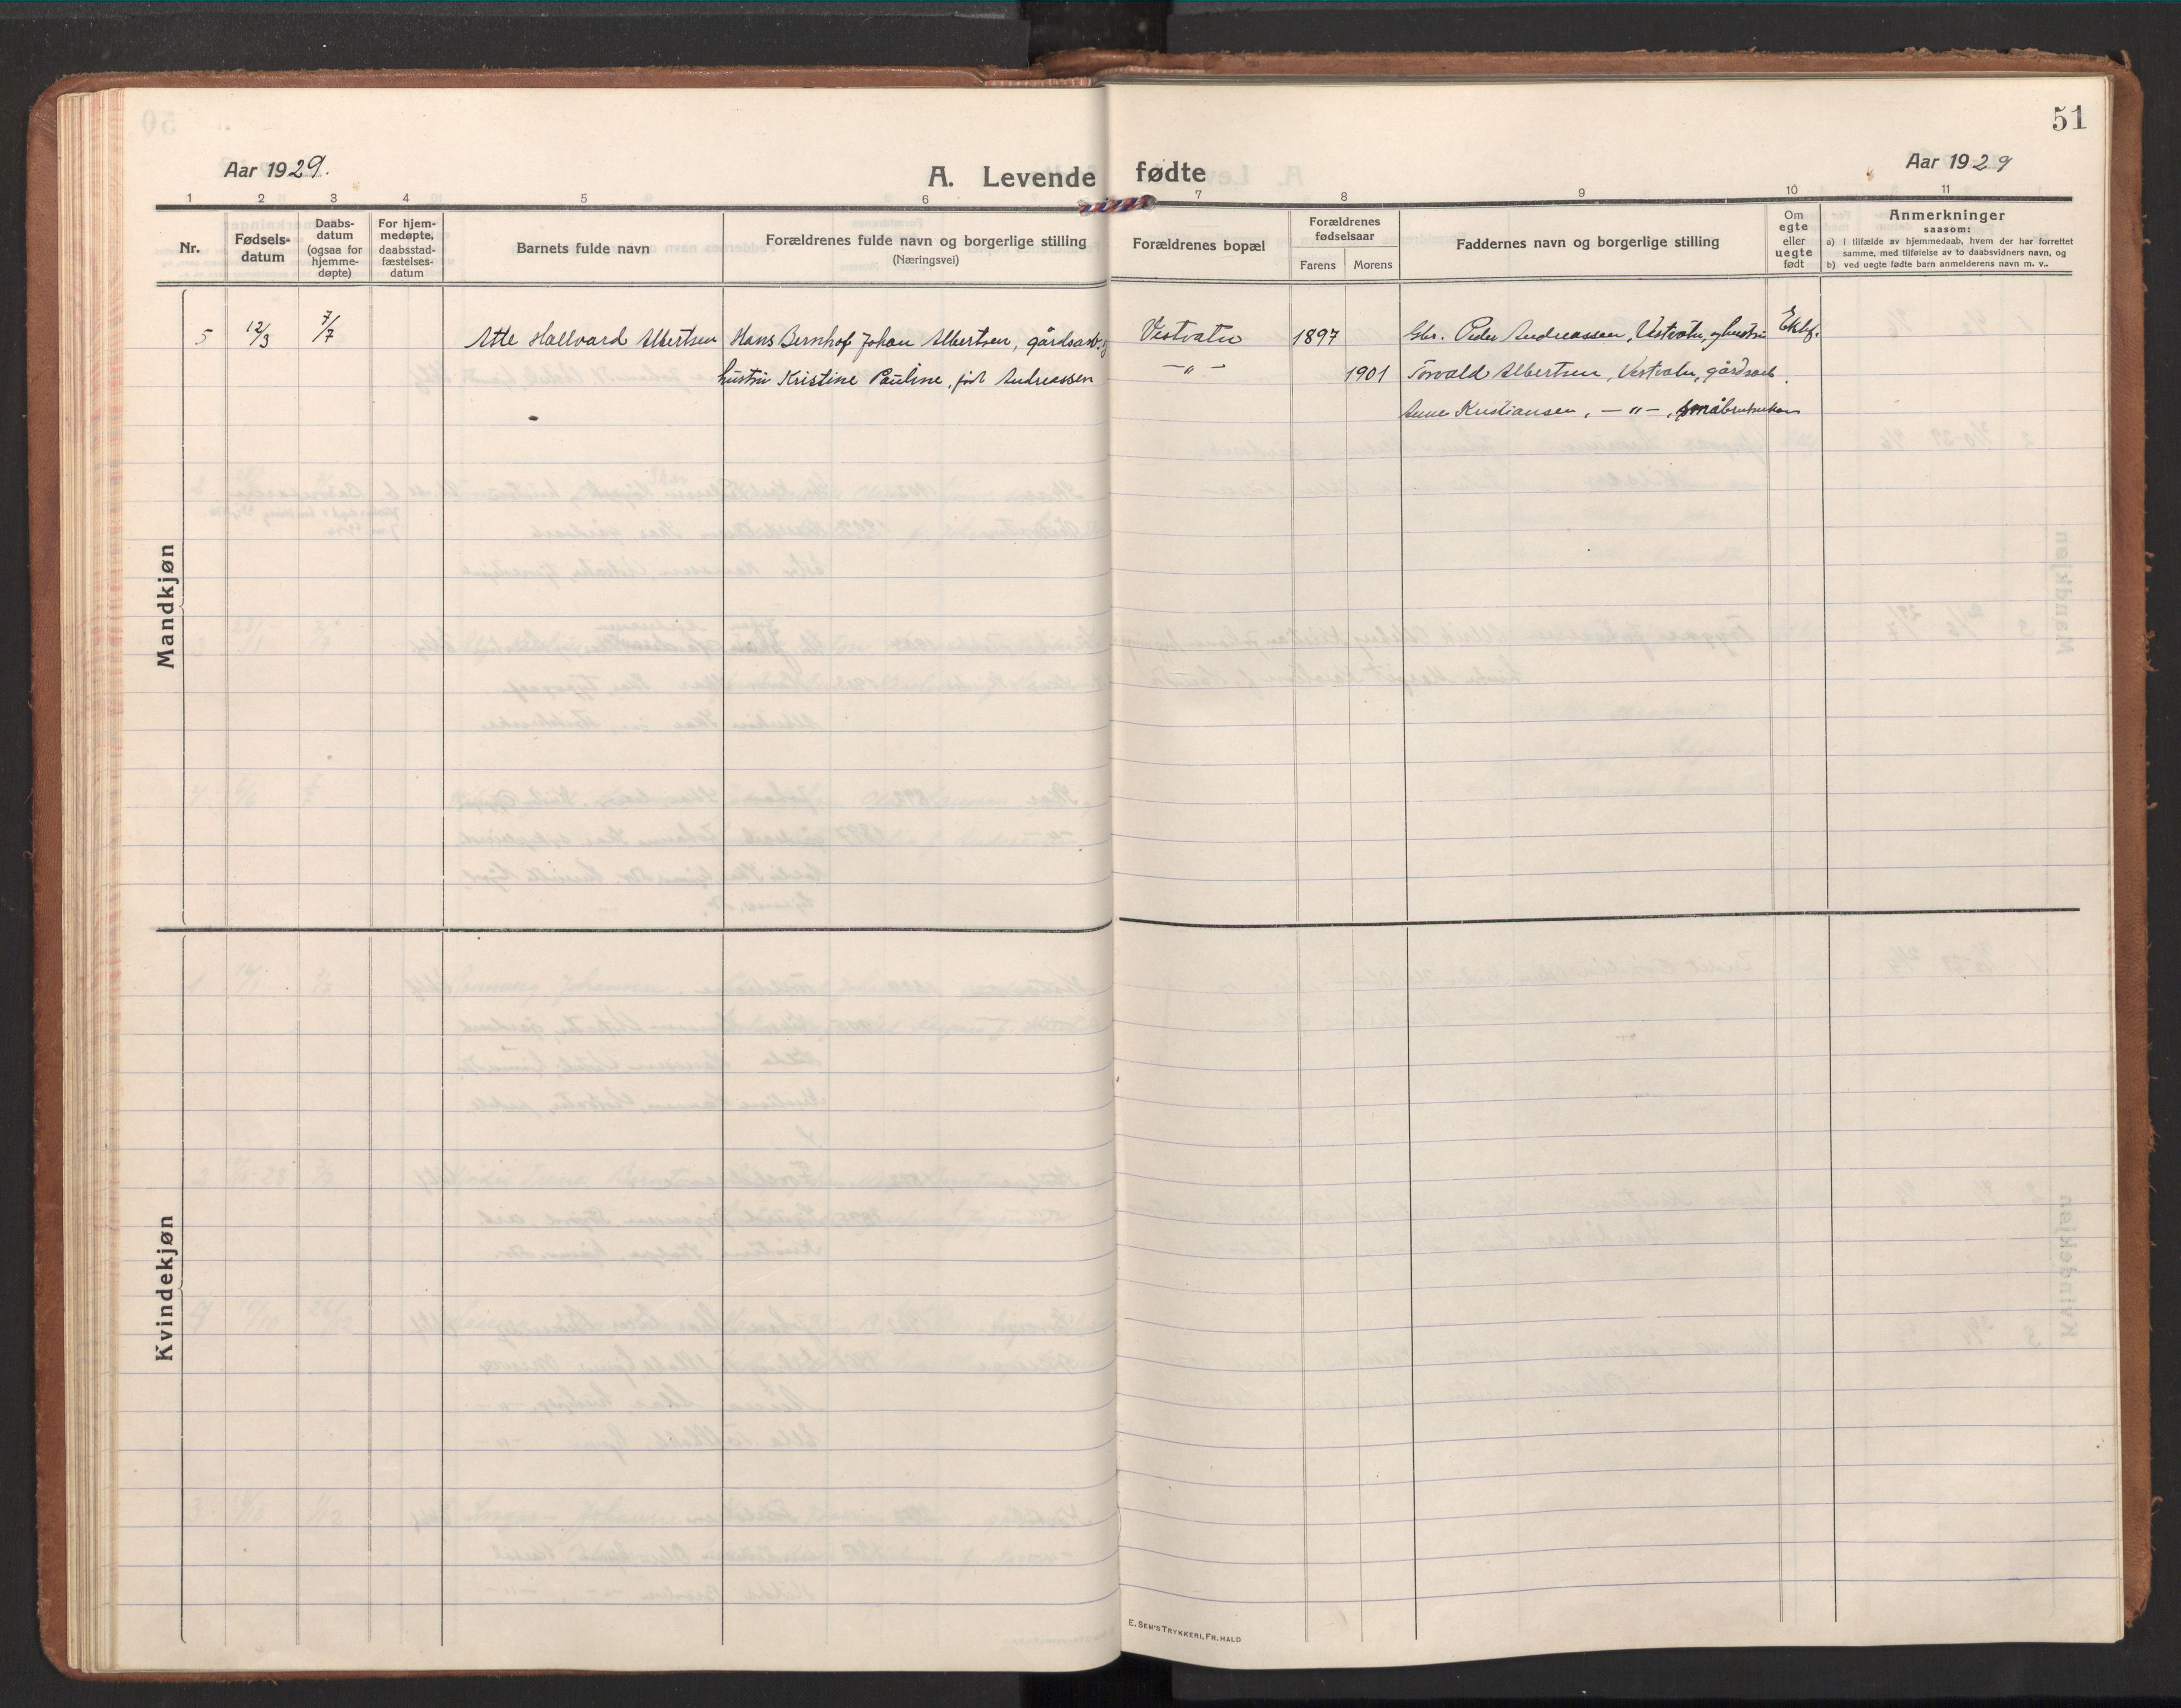 51
Aar 1929.
A. Levende fødte
Aar 1929
1 2 3 4 5 6 7 8 9 10 11
Nr.
Fødsels-
datum
Daabs-
datum
(ogsaa for
hjemme-
døpte)
For hjem-
medøpte,
daabsstad-
fæstelses-
datum
Barnets fulde navn
Forældrenes fulde navn og borgerlige stilling
(Næringsvei)
Forældrenes bopæl
Forældrenes
fødselsaar
Farens Morens
Faddernes navn og borgerlige stilling
Om
egte
eller
uegte
født
Anmerkninger
saasom:
a) i tilfælde av hjemmedaab, hvem der har forrettet
samme, med tilføielse av to daabsvidners navn, og
b) ved uegte fødte barn anmelderens navn m. v..
5 12/3 7/7 Atle Hallvard Albertsen Hans Bernhof Johan Albertsen, gårdsarb. Vestvatn 1897 Gbr. Peder Andreassen, Vestvatn, og hustru Ektef.
hustru Kristine Pauline, født Andreassen — " — 1901 Torvald Albertsen, Vestvatn, gårdsarb.
Anne Kristiansen, — " —, småbrukerkone
Mandkjøn
Kvindekjøn
E. SEM'S TRYKKERI, FR.HALD